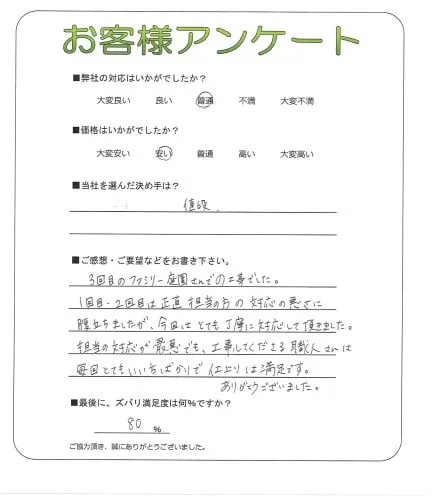 お客様アンケート
■弊社の対応はいかがでしたか？
大変良い 良い 普通 不満 大変不満
■価格はいかがでしたか？
大変安い 安い 普通 高い 大変高い
■当社を選んだ決め手は？
値段．
■ご感想・ご要望などをお書き下さい。
3回目のファミリー庭園さんでの工事でした。
1回目・2回目は正直 担当の方の対応の悪さに
腹立ちましたが、今回はとても丁寧に対応して頂きました。
担当の対応が最悪でも、工事してくださる職人さんは
毎回とてもいい方ばかりで仕上りは満足です。
ありがとうございました。
■最後に、ズバリ満足度は何%ですか？
80 %
ご協力頂き、誠にありがとうございました。